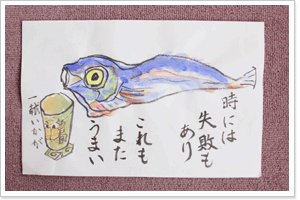 時には
失敗も
あり
これも
また
うまい
一献いかが